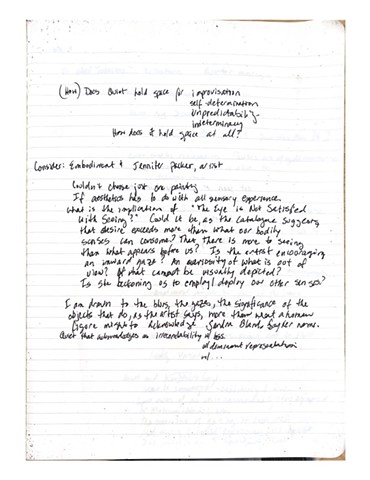 (How) Does Quiet hold space for improvisation
self-determination
unpredictability
indeterminacy
How does it hold space at all?
Consider: Embodiment & Jennifer Packer, artist
Couldn't choose just one painting
If aesthetics has to do with all sensory experience
what is the implication of "The Eye is Not Satisfied
With Seeing?" Could it be, as the catalogue suggests,
that desire exceeds more than what our bodily
senses can consume? That there is more to seeing
than what appears before us? Is the artist encouraging
an inward gaze? An curiosity of what is out of
view? Of what cannot be visually depicted?
Is she beckoning us to employ/deploy our other senses?
I am drawn to the blurs, the gazes, the significance of the
objects that do, as the artist says, more than what a human
figure might to acknowledge Sandra Bland, Say her name.
Quiet that acknowledges an w/ loss
w/ dominant representation
w/...